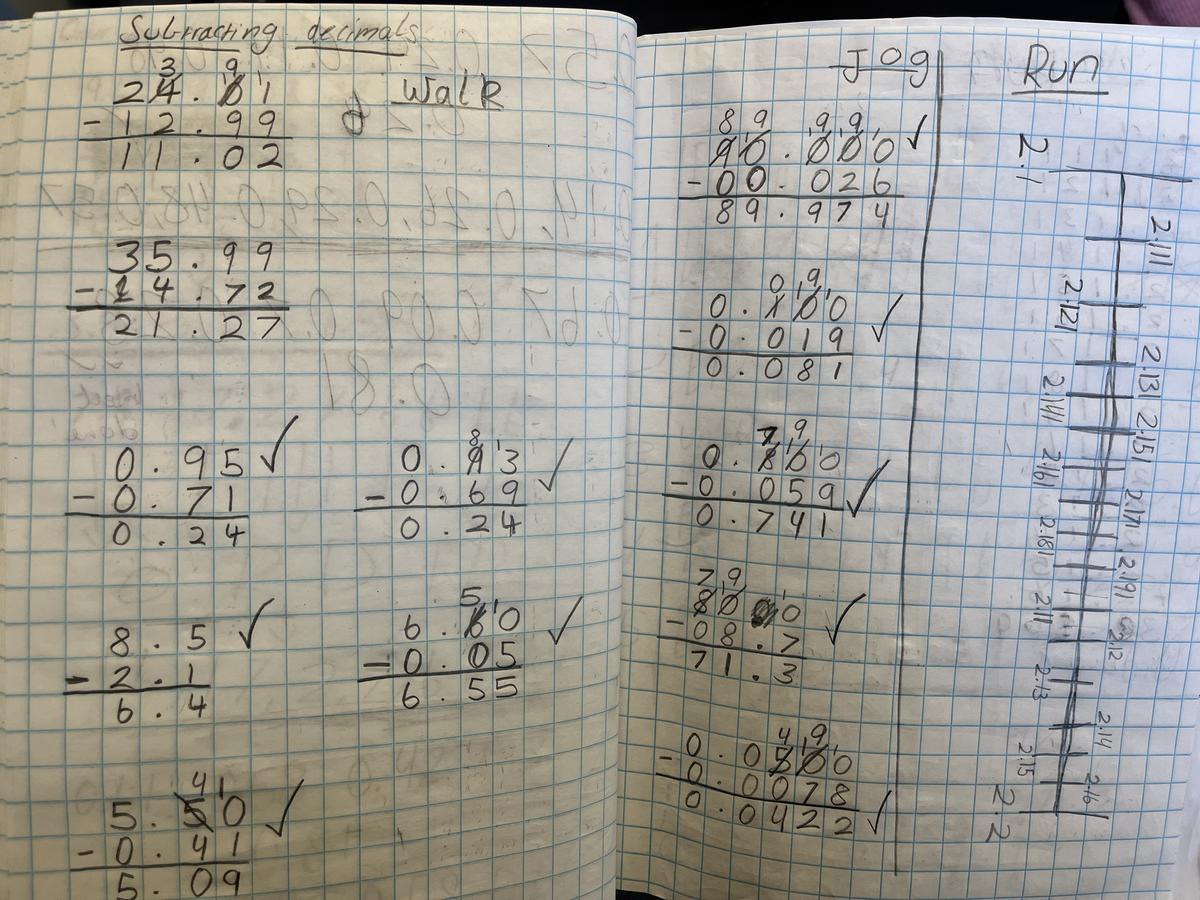 Subtracting decimals
Walk
3 9
24.01
-12.99
11.02
35.99
-14.72
21.27
0.95 ✓
-0.71
0.24
8 1
0.93 ✓
-0.69
0.24
8.5 ✓
-2.1
6.4
5 1
6.60 ✓
-0.05
6.55
4 1
5.50 ✓
-0.41
5.09
Jog
8 9 9 9 1
90.000 ✓
-00.026
89.974
0 9 1
0.100 ✓
-0.019
0.081
7 9
0.800 ✓
-0.059
0.741
7 9 1
80.0 ✓
-08.7
71.3
4 9
0.0500
-0.0078
0.0422 ✓
Run
2.1
2.111
2.121
2.131
2.141
2.151
2.161
2.171
2.181
2.191
2.11
2.12
2.13
2.14
2.15
2.16
2.2